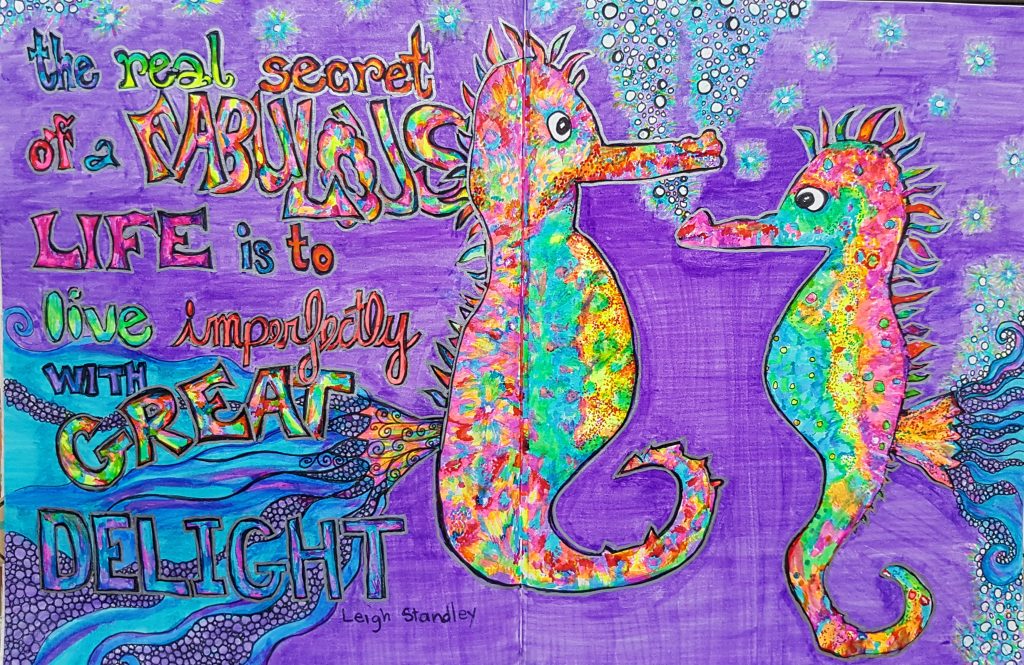 the real secret
of a FABULOUS
LIFE is to
live imperfectly
WITH
GREAT
DELIGHT
Leigh Standley